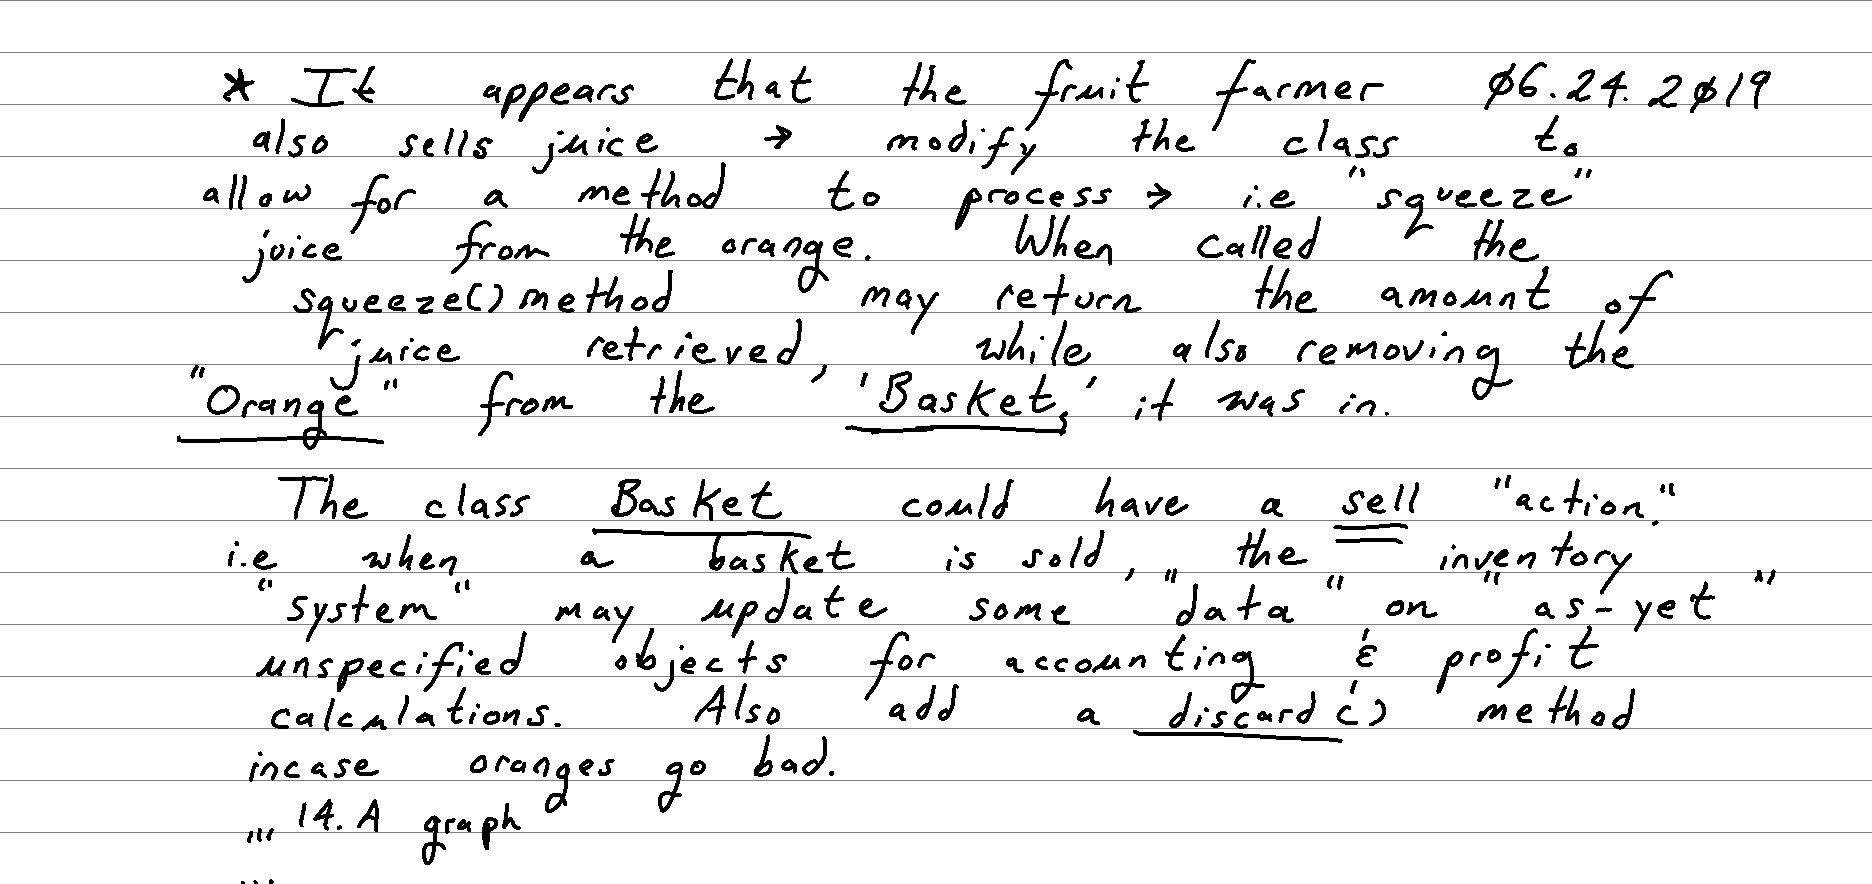 * It appears that the fruit farmer 06.24.2019
also sells juice → modify the class to
allow for a method to process → i.e "squeeze"
juice from the orange. When called the
squeeze() method may return the amount of
juice retrieved, while also removing the
"Orange" from the 'Basket,' it was in.
The class Basket could have a sell "action."
i.e when a basket is sold, the inventory
"system" may update some "data" on "as-yet"
unspecified objects for accounting & profit
calculations. Also add a discard() method
incase oranges go bad.
,,, 14. A graph
...